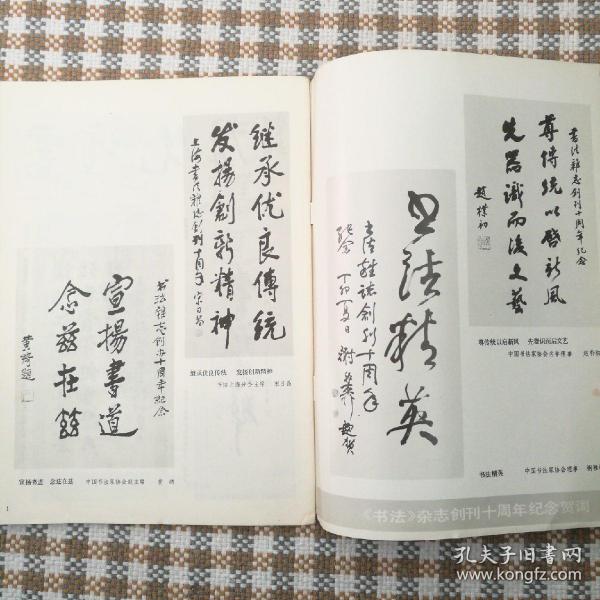 继承优良傳統
发揚創新精神
上海书法雜志創刊十周年
宋日昌
继承优良传统 发扬创新精神
宣揚書道
念兹在兹
书法雜志創办十周年紀念
黄绮题
宣扬书道 念兹在兹
中国书法家协会副主席 黄绮
1
尊傳統以啓新风
先器識而後文藝
书法雜志創刊十周年纪念
趙樸初
尊传统以启新风 先器识而后文艺
中国书法家协会名誉理事
书法精英
书法雜誌創刊十周年
丁卯夏日
书法精英
中国书法家协会理事
《书法》杂志创刊十周年纪念贺词
孔夫子旧书网
www.kongfz.com